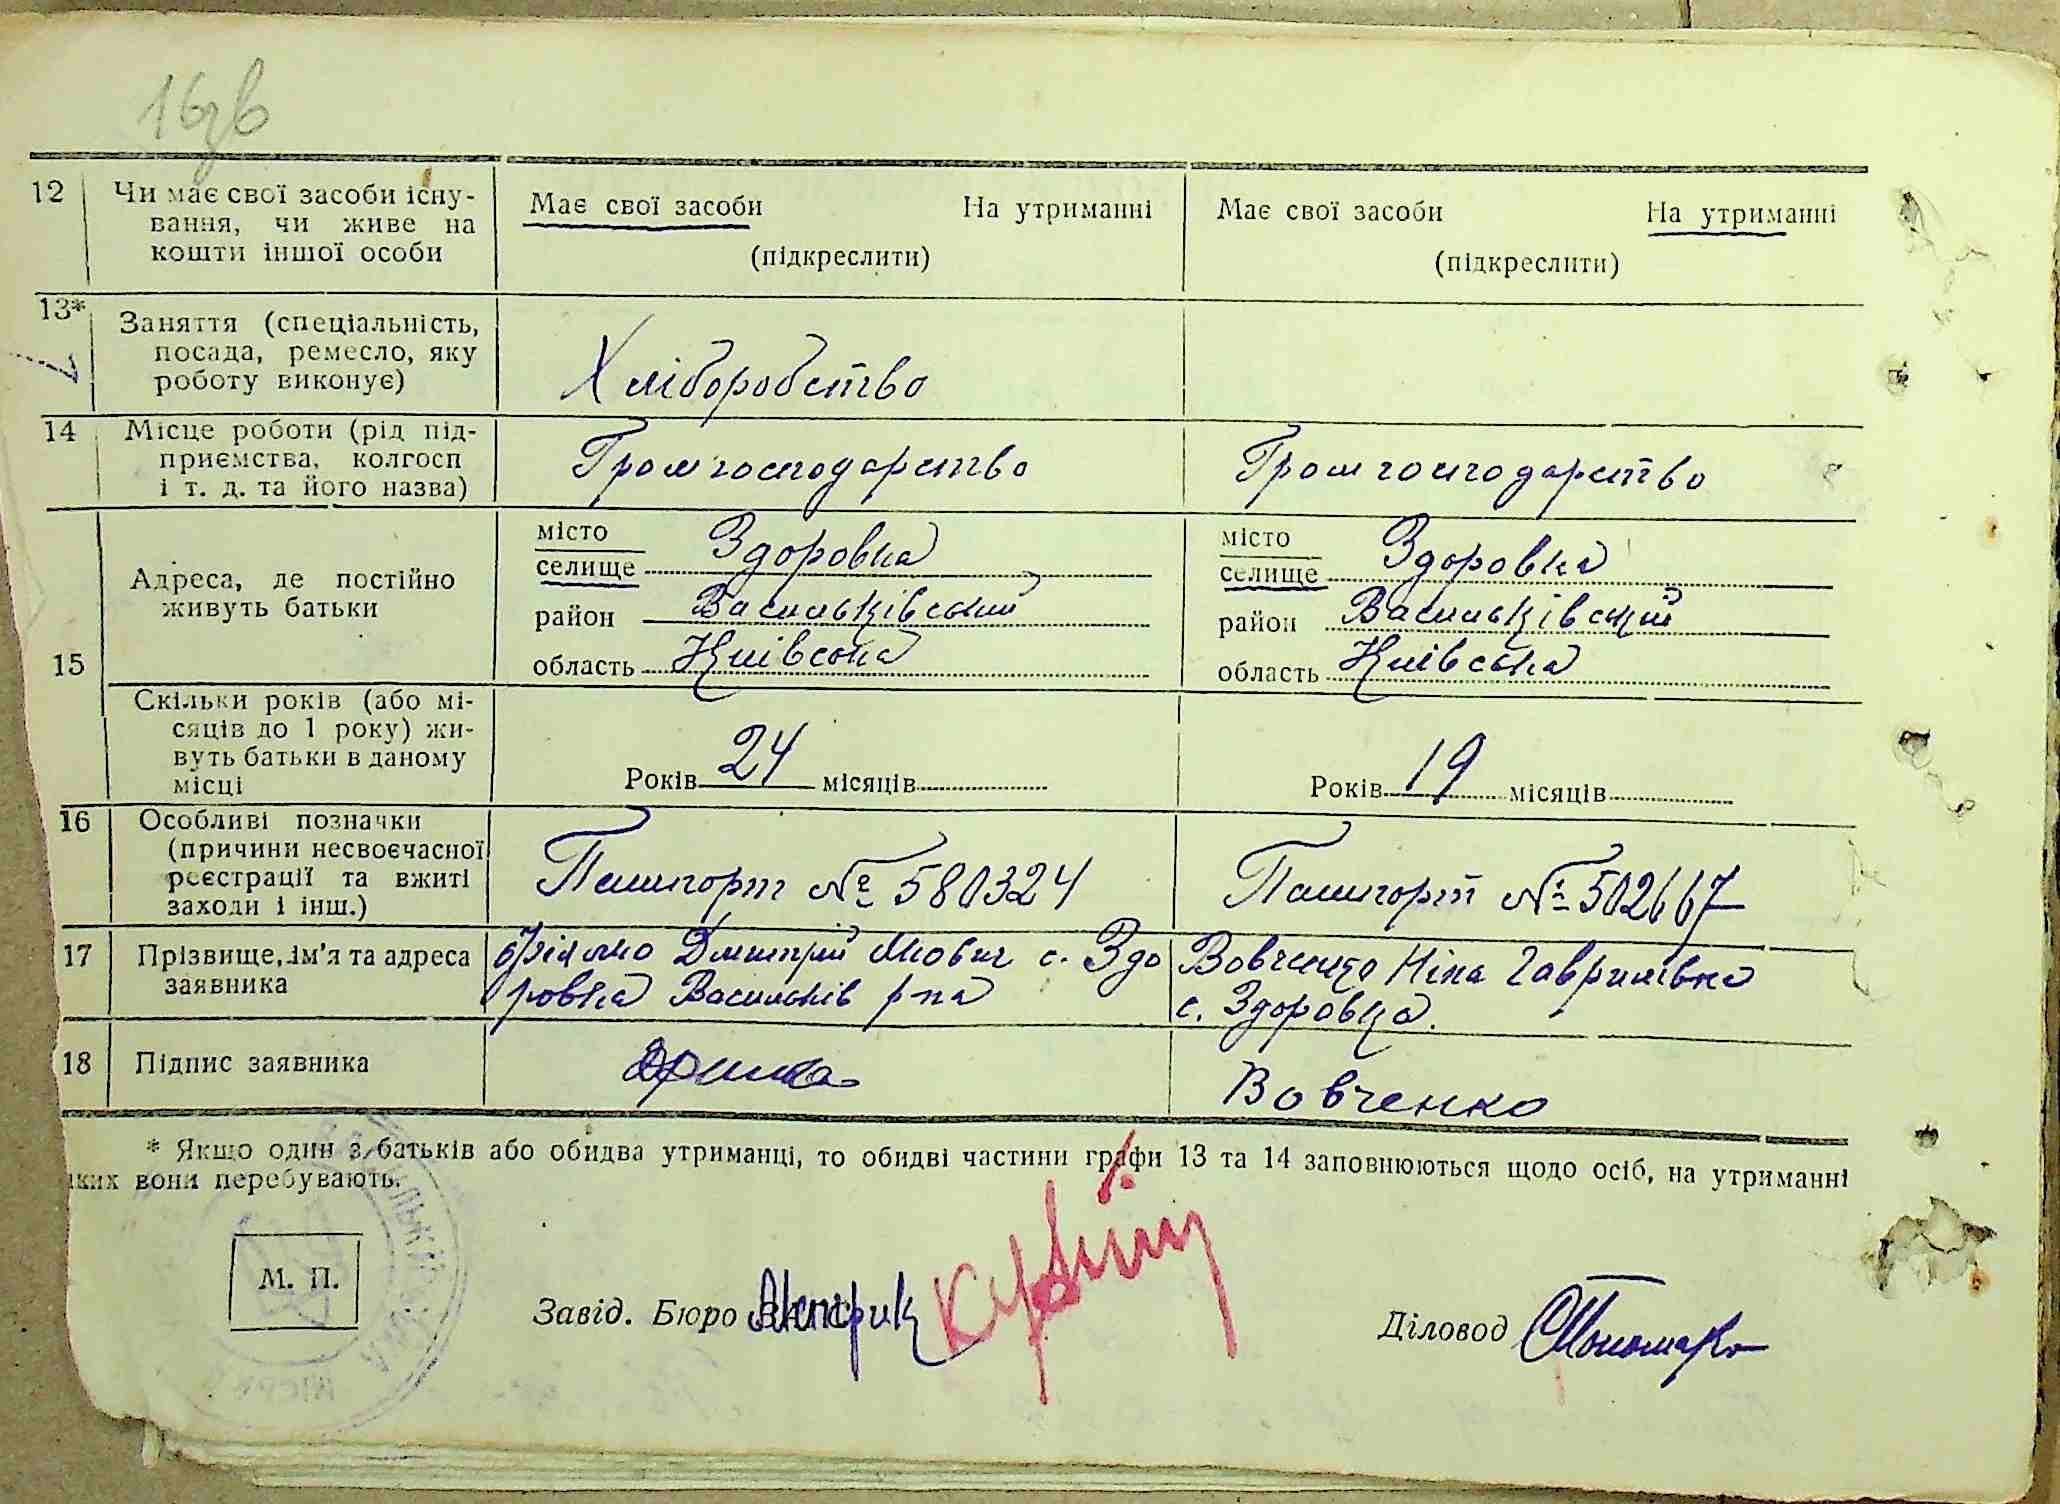 16зв
12 Чи має свої засоби існу-
вання, чи живе на
кошти іншої особи
Має свої засоби На утриманні
(підкреслити)
Має свої засоби На утриманні
(підкреслити)
13* Заняття (спеціальність,
посада, ремесло, яку
роботу виконує)
Хліборобство
14 Місце роботи (рід під-
приємства, колгосп
і т. д. та його назва)
Громгосподарство
Громгосподарство
15
Адреса, де постійно
живуть батьки
місто
селище Здоровка
район Васильківський
область Київська
місто
селище Здоровка
район Васильківский
область Київська
Скільки років (або мі-
сяців до 1 року) жи-
вуть батьки в даному
місці
Років 24 місяців
Років 19 місяців
16 Особливі позначки
(причини несвоєчасної
реєстрації та вжиті
заходи і інш.)
Пашпорт № 580324
Пашпорт № 502667
17 Прізвище, ім'я та адреса
заявника
Дмитрій с. Здо
ровка Васильків р-на
Вовченко Ніна Гаврилівна
с. Здоровка.
18 Підпис заявника
Вовченко
* Якщо один з батьків або обидва утриманці, то обидві частини графи 13 та 14 заповнюються щодо осіб, на утриманні
яких вони перебувають.
М. П.
Завід. Бюро
Діловод